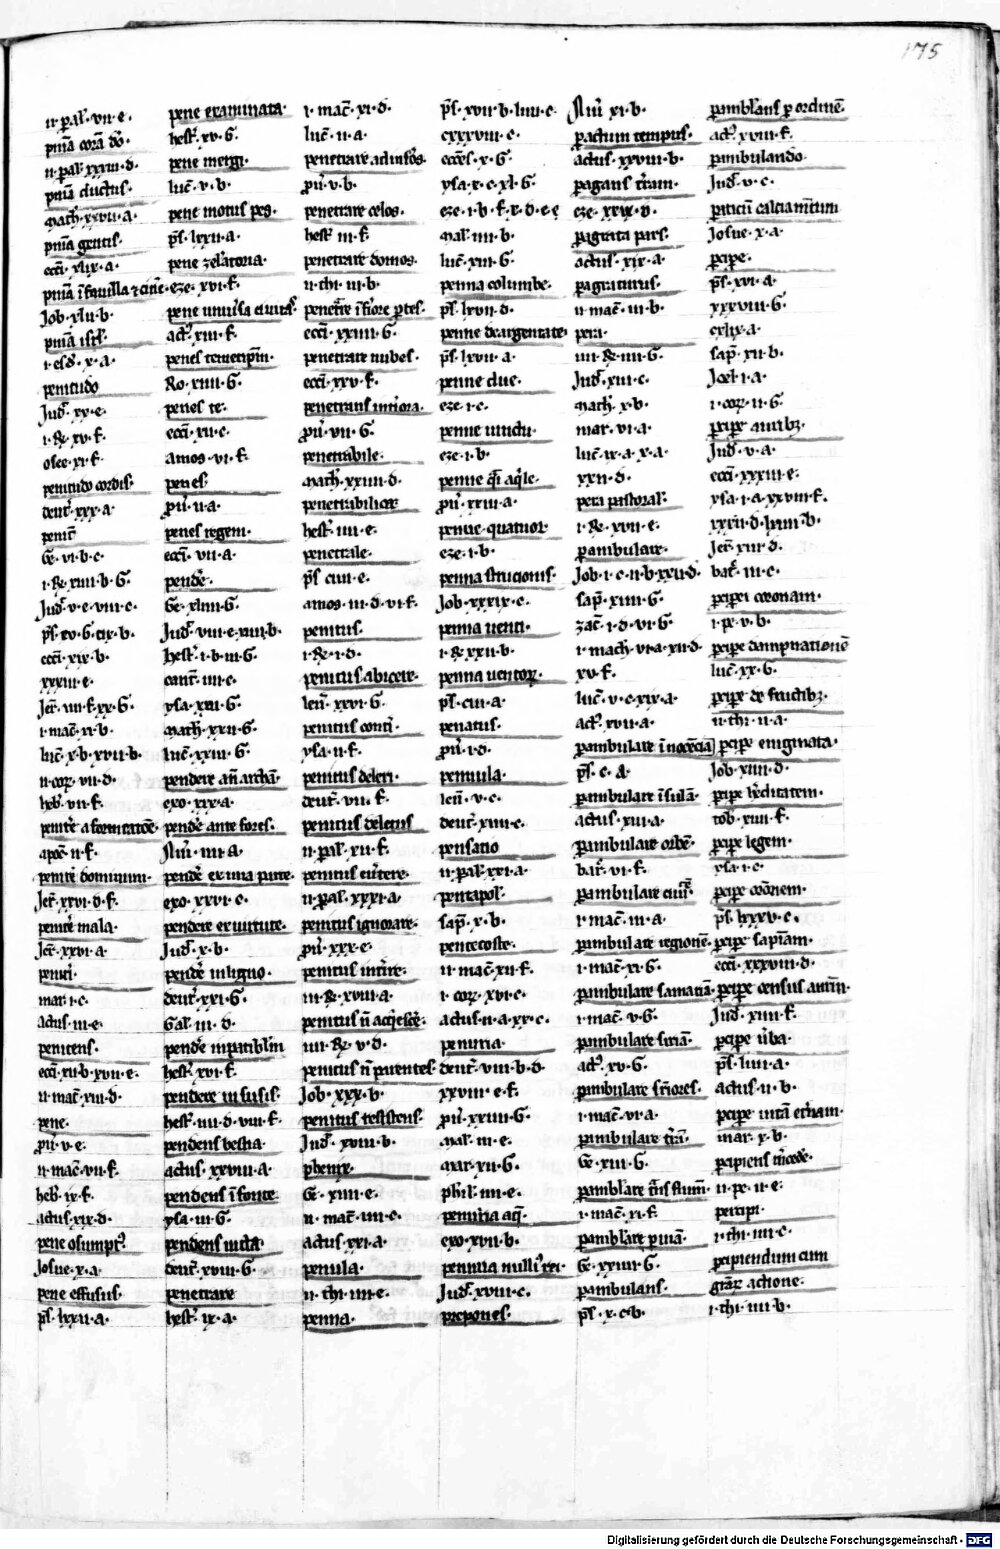 175
ii·pal·vii·e·
p̄nīa corā dō·
ii·pal·xxxiii·d·
p̄nīa ductus·
math·xxvii·a·
p̄nīa gentis·
ecci·xlix·a·
p̄nīa ī favilla ⁊ cīne·
Job·xlii·b·
p̄nīa isrl·
i·esd·x·a·
penitudo
Jud·xx·e·
i·R·xv·f·
osee·xi·f·
penitudo cordis·
deut·xxx·a·
penit
Ge·vi·b·c·
i·R·xiiii·b·G·
Jud·v·e·viii·c·
ps·xv·G·cix·b·
ecci·xix·b·
xxxiii·e·
Jer·iiii·f·xx·G·
i·mac·xi·b·
luc·x·b·xvii·b·
ii·cor·vii·d·
heb·vii·f·
penite a fornicatōe·
apoc·ii·f·
penite dominum·
Jer·xxvi·d·f·
penite mala·
Jer·xxvi·a·
peniti·
mar·i·c·
actus·iii·e·
penitens·
ecci·xii·b·xvii·e·
ii·mac·xiii·d·
pene·
pu·v·e·
ii·mac·vii·f·
heb·ix·f·
actus·xix·d·
pene osumpt·
Josue·x·a·
pene effusus·
ps·lxxii·a·
pene examinata·
hest·xv·G·
pene mergi·
luc·v·b·
pene motus pes·
ps·lxxii·a·
pene zelatoria·
eze·xvi·f·
pene univsa civitas
act·xiii·f·
penes temetipm·
Ro·xiiii·G·
penes te·
ecci·xii·c·
amos·vi·f·
penes·
pu·ii·a·
penes regem·
ecci·vii·a·
pendē·
Ge·xliiii·G·
Jud·viii·e·xiiii·b·
hest·i·b·iii·G·
cant·iiii·c·
ysa·xxii·G·
math·xxii·G·
luc·xxiii·G·
pendere añ archā·
exo·xix·a·
pendē ante fores·
Nuɱ·iiii·a·
pendē ex una parte·
exo·xxvi·c·
pendere ex virtute·
Jud·x·b·
pendē in ligno·
deut·xxi·G·
Gal·iii·d·
pendē in patiblm
hest·xvi·f·
pendere in susis·
hest·iiii·d·viii·f·
pendens bestia·
actus·xxviii·a·
pendens ī fonte·
ysa·iii·G·
pendens iuxta·
deut·xviii·G·
penetrare
hest·ix·a·
i·mac·xi·d·
luc·ii·a·
penetrare ad infos·
pu·v·b·
penetrare celos·
hest·iii·f·
penetrare domos·
ii·thi·iii·b·
penetre ifiore ptes·
ecci·xxiiii·G·
penetrare nubes·
ecci·xxv·f·
penetrans intiora·
pu·vii·G·
penetrabile·
math·xxiiii·d·
penetrabilior
hest·iiii·e·
penetrale·
ps·ciiii·e·
amos·iii·d·vi·f·
penitus·
i·R·i·d·
penitus abicere·
leu·xxvi·G·
penitus conti·
ysa·ii·f·
penitus deleri·
deut·vii·f·
penitus deletus
ii·pal·xii·f·
penitus eutere·
ii·pal·xxxi·a·
penitus ignorare·
pu·xxx·e·
penitus intire·
iii·R·xviii·a·
penitus ñ acqescē·
iiii·R·v·d·
penitus ñ parentes·
Job·xxx·b·
penitus resistens·
Jud·xviii·b·
phenre·
Ge·xiiii·e·
ii·mac·iiii·c·
actus·xxi·a·
penula·
ii·thi·iiii·e·
penna·
ps·xvii·b·liiii·c·
cxxxviii·c·
ecces·x·G·
ysa·x·c·xl·G·
eze·i·b·f·x·d·e·e
mal·iiii·b·
luc·xiii·G·
penna columbe·
ps·lxvii·d·
penne deargentate·
ps·lxvii·a·
penne due·
eze·i·c·
penne iuncte·
eze·i·b·
penne qsi aqile·
pu·xxiii·a·
penne quatuor
eze·i·b·
penna strucionis·
Job·xxxix·c·
penna venti·
i·R·xxii·b·
penna ventor·
ps·ciii·a·
penatus·
pu·i·d·
pennula·
leu·v·c·
deut·xiiii·c·
pensatio
ii·pal·xxi·a·
pentapol·
sap·x·b·
pentecoste·
ii·mac·xii·f·
i·cor·xvi·c·
actus·ii·a·xx·c·
penuria·
deut·viii·b·d·
xxviii·e·f·
pu·xxiiii·G·
mal·iii·e·
mar·xii·G·
phil·iiii·e·
penuria aq·
exo·xvii·b·
penuria nulli rei·
Jud·xviii·c·
pepones·
Nuɱ·xi·b·
pactum tempus·
actus·xxviii·b·
pagrans tram·
eze·xxix·d·
pagrata pars·
actus·xix·a·
pagraturus·
ii·mac·iii·b·
pera·
iiii·R·iiii·G·
Jud·xiii·c·
math·x·b·
mar·vi·a·
luc·ix·a·x·a·
xxii·d·
pera pastoral·
i·R·xvii·e·
pambulare·
Job·i·c·ii·b·xxii·d·
sap·xiiii·G·
zac·i·d·vi·G·
i·mach·vi·a·xii·d·
xv·f·
luc·v·c·xix·a·
act·xvii·a·
pambulare inocecia
ps·c·a·
pambulare isula·
actus·xiii·a·
pambulare orbe·
bar·vi·f·
pambulare civit
i·mac·iii·a·
pambulare regione·
i·mac·xi·G·
pambulare samaria·
i·mac·v·G·
pambulare siria·
act·xv·G·
pambulare sriores·
i·mac·vi·a·
pambulare tra·
Ge·xiii·G·
pamblare tns flum·
i·mac·xi·f·
pamblare p via·
Ge·xxiiii·G·
pambulans·
ps·x·c·b·
pamblans p ordine
act·xviii·f·
pambulando·
Jud·v·c·
pticiu calciamtum
Josue·x·a·
pcipe·
ps·xvi·a·
xxxviii·G·
cxlix·a·
sap·xii·b·
Joel·i·a·
i·cor·ii·G·
pcipe auribz·
Jud·v·a·
ecci·xxxiii·e·
ysa·i·a·xxviii·f·
xxxii·d·lxiiii·b·
Jer·xiii·d·
bar·iii·c·
pcipe coronam·
i·pe·v·b·
pcipe dampnatione
luc·xx·G·
pcipe de fructibz·
ii·thi·ii·a·
pcipe enigmata·
Job·xiii·d·
pcipe hreditatem·
tob·xiiii·f·
pcipe legem·
ysa·i·c·
pcipe oronem·
ps·lxxxv·c·
pcipe sapiam·
ecci·xxxviii·d·
pcipe census aurm
Jud·xiiii·f·
pcipe vba·
ps·liiii·a·
actus·ii·b·
pcipe vita eternam·
mar·x·b·
pcipiens mcede·
ii·pe·ii·e·
percipi·
i·thi·iiii·c·
pcipiendum cum
grar actione·
i·thi·iiii·b·
Digitalisierung gefördert durch die Deutsche Forschungsgemeinschaft · DFG